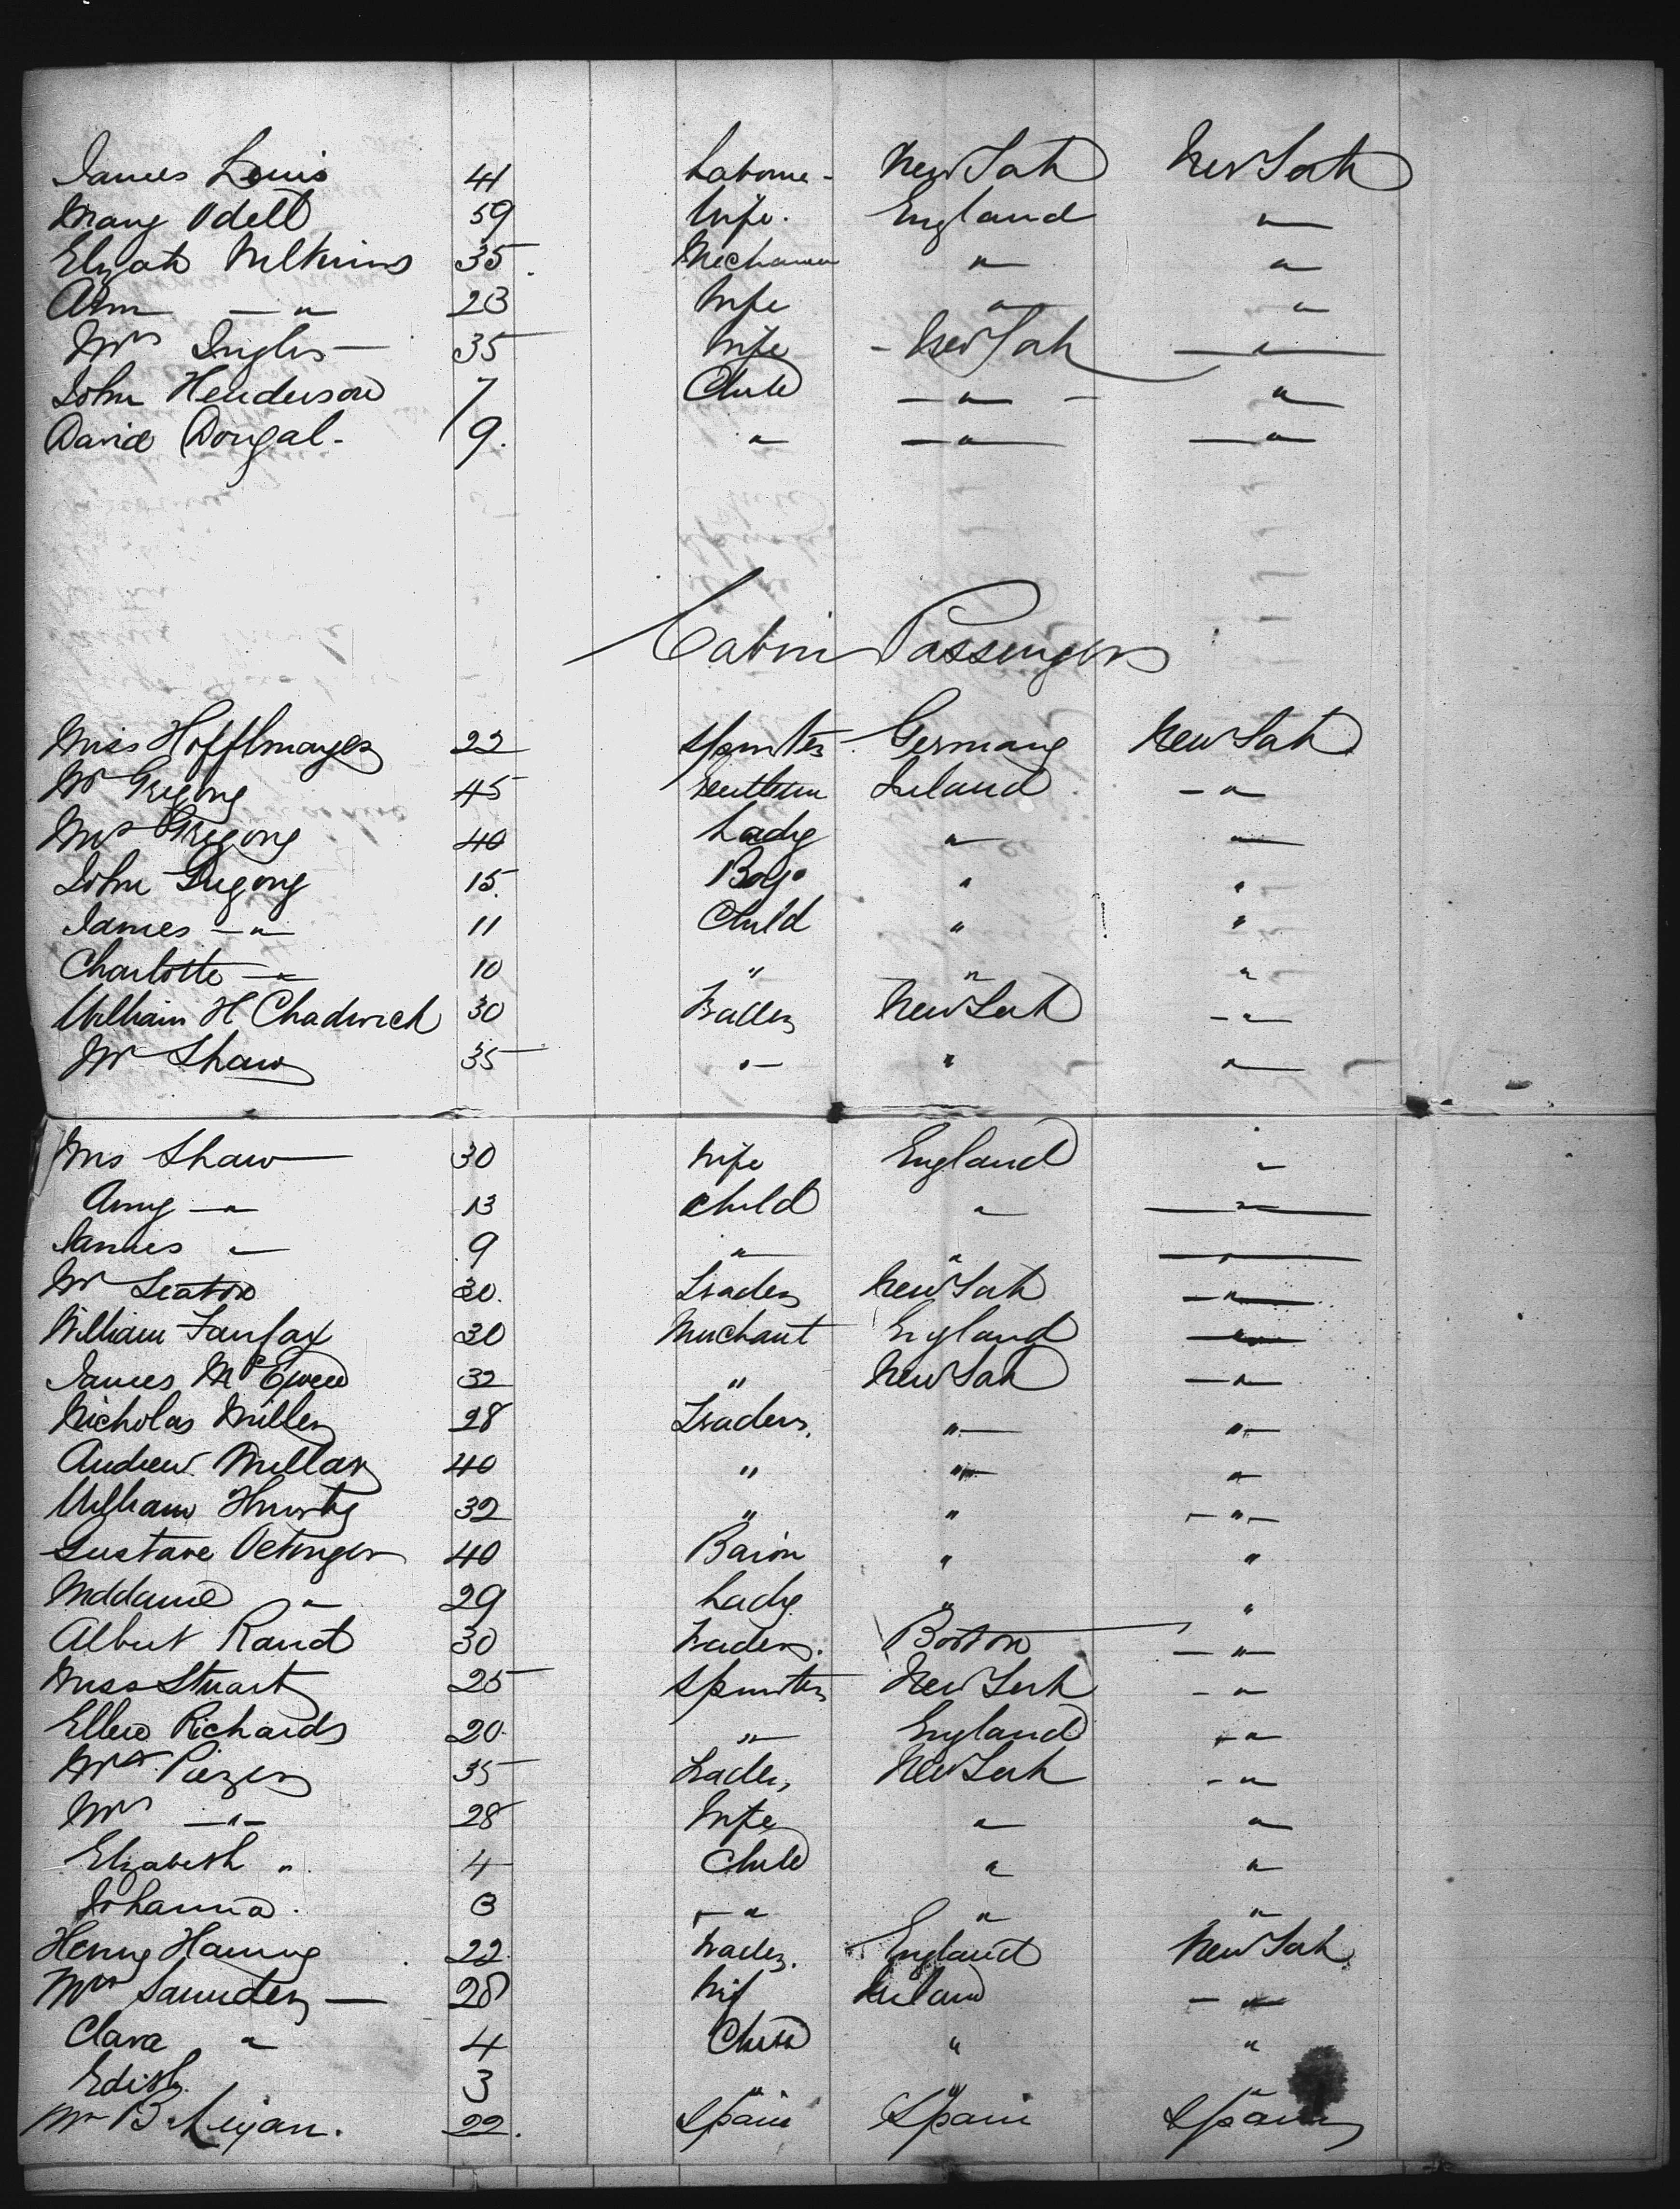 James Louis 41 Laborer - New York New York
Mary Odell 59 Wife. England "
Elijah Wilkins 35. Mechanic " "
Ann — " 23 Wife " "
Mrs Inglis — 35 Wife - New York — " —
John Henderson 7 Child — " - "
David Dougal - 9. " — " — — " —
Cabin Passengers
Miss Hofflmayer 22 Spinster Germany New York
Mr Gregory 45 Gentleman Ireland - "
Mrs Gregory 40 Lady " "
John Gregory 15. Boy " "
James - " 11 Child " "
Charlotte - " 10 " " "
William H Chadwick 30 Trader New York - "
Mr Shaw 35 " " "
Mrs Shaw 30 Wife England "
Amy - " 13 Child " — " —
James " 9 " " — " —
Mr Seaton 30. Trader New York - "
William Fairfax 30 Merchant England "
James McEwen 32 " New York - "
Nicholas Miller 28 Trader. " "
Andrew Millar 40 " " "
William 32 " " - " -
Gustave Oetinger 40 Baron " "
Maddame " 29 Lady " "
Albert Rand 30 Trader. Boston - "
Miss Stuart 25 Spinster New York - "
Ellen Richards 20. " England - "
Mr 35 Trader, New York - "
Mrs - " - 28 Wife " "
Elizabeth " 4 Child " "
Johanna. 3 - " " "
Henry 22. Trader. England New York
Mrs Saunders — 28 Wif Ireland - "
Clara " 4 Child " "
Edith 3 " " "
Mr B 22. Spain Spain Spain